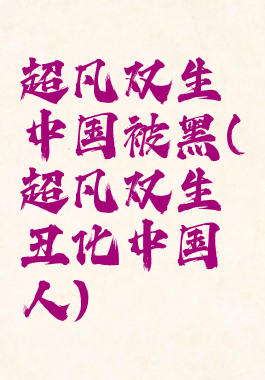 超凡双生
中国被黑(
超凡双生
丑化中国
人)